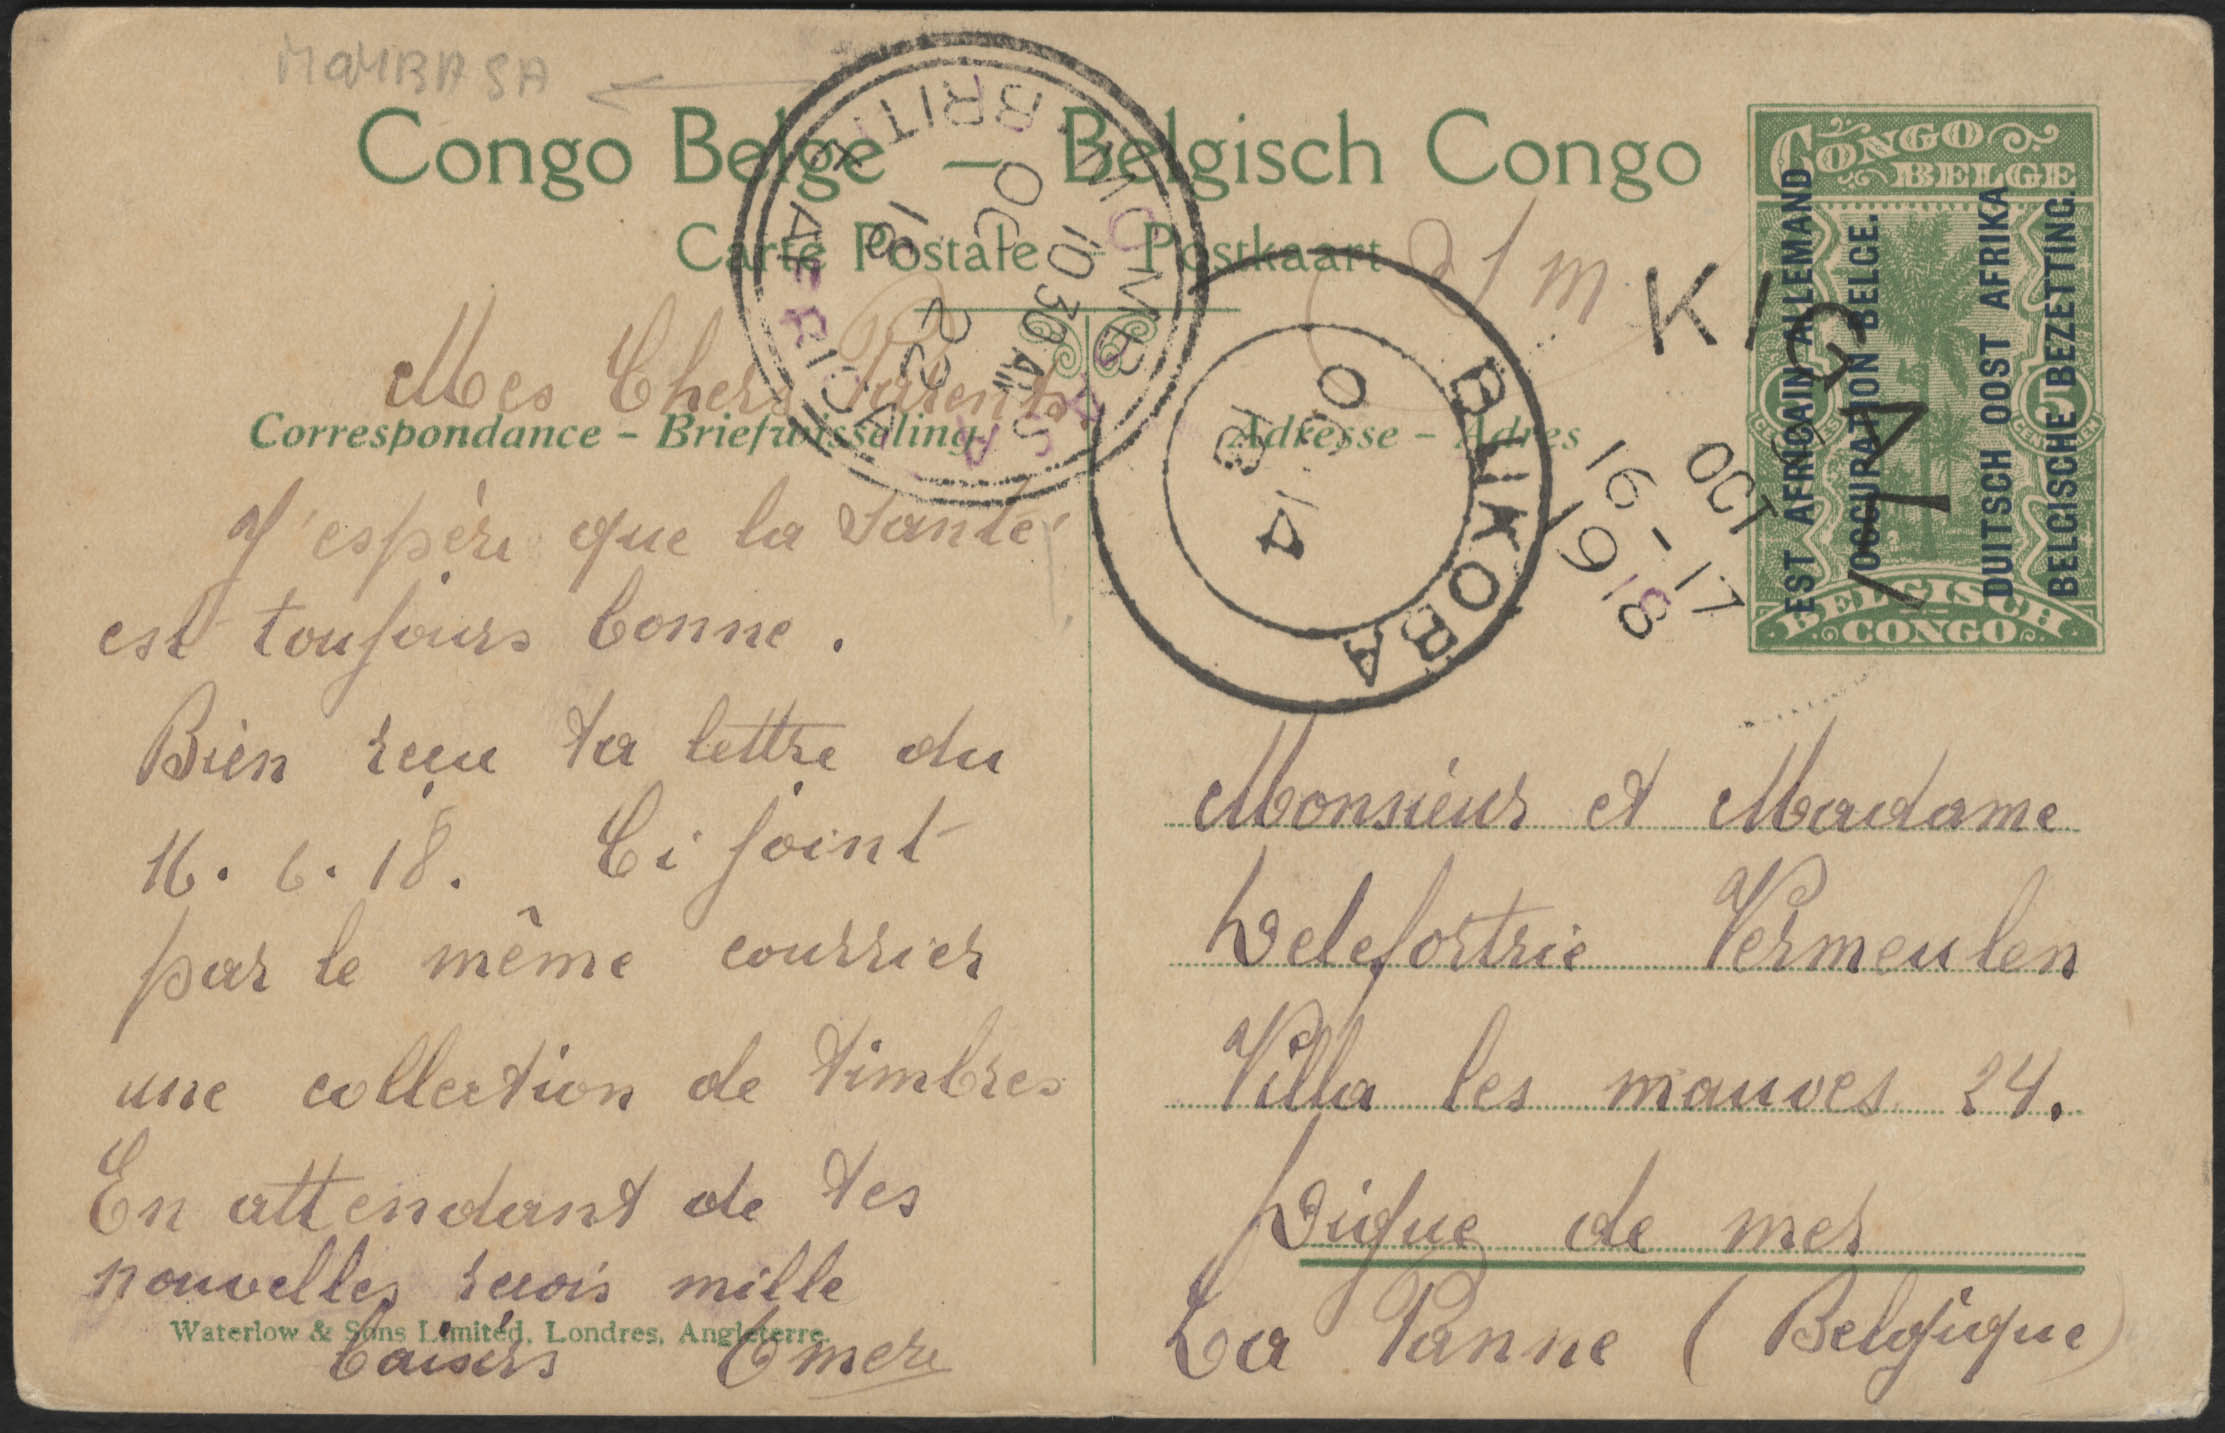 MOMBASA
Congo Belge — Belgisch Congo
Carte Postale Postkaart
CONGO BELGE
5
CENTIMES
5
CENTIEMEN
BELGISCH CONGO
EST AFRICAIN ALLEMAND
OCCUPATION BELGE.
DUITSCH OOST AFRIKA
BELGISCHE BEZETTING.
MOMBASA
10 30 AM
OC 25
18
BRIT. E. AFRICA
BUKOBA
O
14
18
KIGALI
OCT
16-17
1918
Correspondance – Briefwisseling
Adresse – Adres
Mes Chers Parents
J'espère que la Santé
est toujours bonne.
Bien reçu ta lettre du
16.6.18. Ci joint
par le même courrier
une collection de timbres
En attendant de tes
nouvelles reçois mille
baisers Omere
Waterlow & Sons Limited, Londres, Angleterre.
Monsieur et Madame
Delefortrie Vermeulen
Villa les mauves 24.
Digue de mer
La Panne (Belgique)